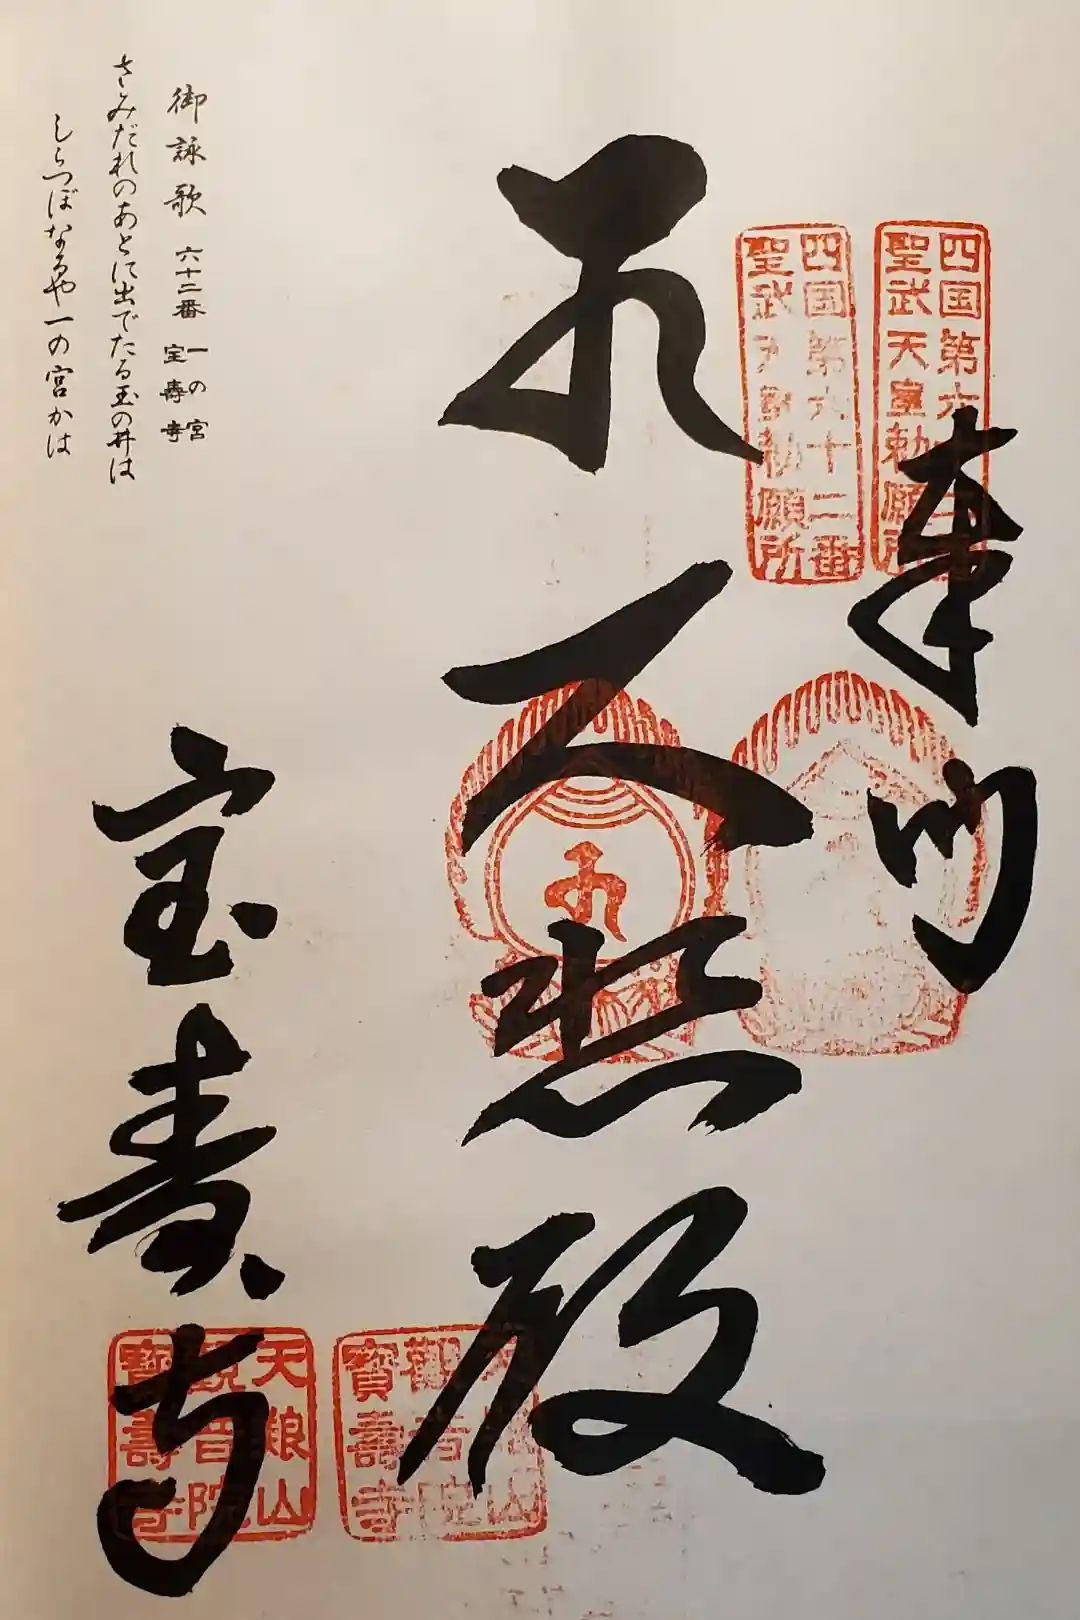 奉納
四国第六十二番
聖武天皇勅願所
四国第六十二番
聖武天皇勅願所
大悲殿
天養山
觀音院
寶壽寺
天養山
觀音院
寶壽寺
宝寿寺
御詠歌 六十二番 一の宮 宝壽寺
さみだれのあとに出でたる玉の井は
しらつぼなるや一の宮かは